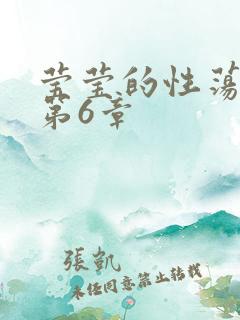 莹莹的性荡
第6章
張凱
未经同意禁止转载